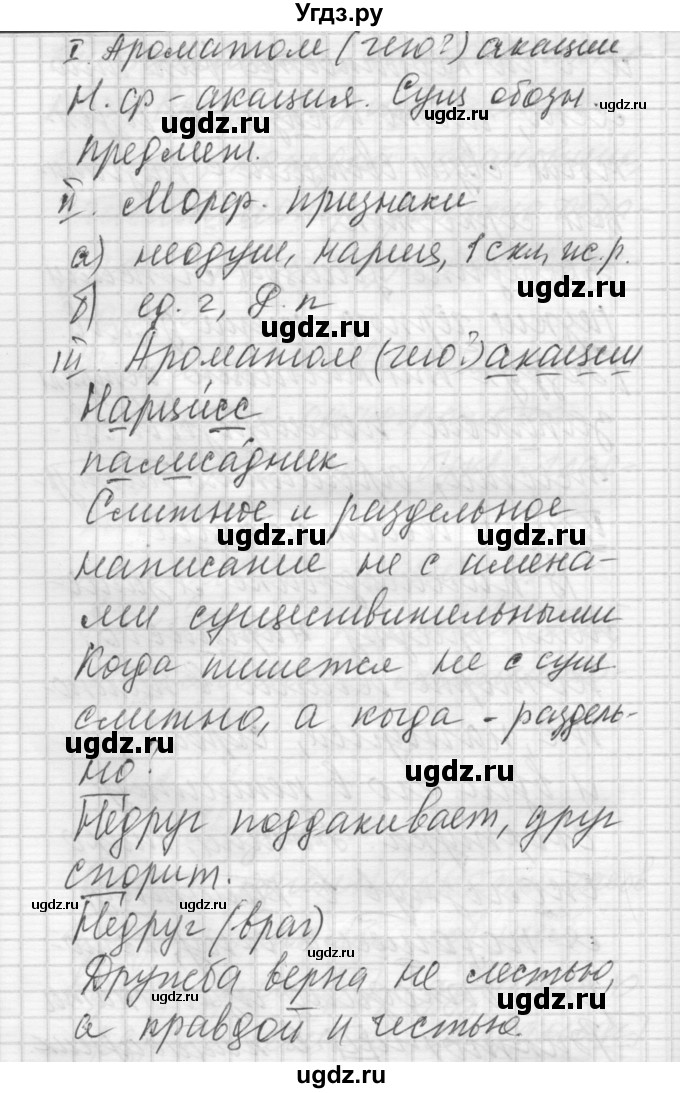 Угдз.ру
I. Ароматом (чего?) акации.
Н.ф - акация. Сущ обозн.
ugdz.ru
ugdz.ru
предмет.
II. Морф. признаки
а) неодуш, нариц, 1 скл, ж.р.
ugdz.ru
б) ед. г, Р. п
ugdz.ru
III. Ароматом (чего?) акации
ugdz.ru
ugdz.ru
Нарцисс
палисадник
Слитное и раздельное
ugdz.ru
ugdz.ru
написание не с имена-
ми существительными
Когда пишется не с сущ
слитно, а когда - раздель-
ugdz.ru
но?
ugdz.ru
Недруг поддакивает, друг
спорит.
ugdz.ru
ugdz.ru
ugdz.ru
Недруг (враг)
Дружба верна не лестью,
ugdz.ru
ugdz.ru
а правдой и честью.
ugdz.ru